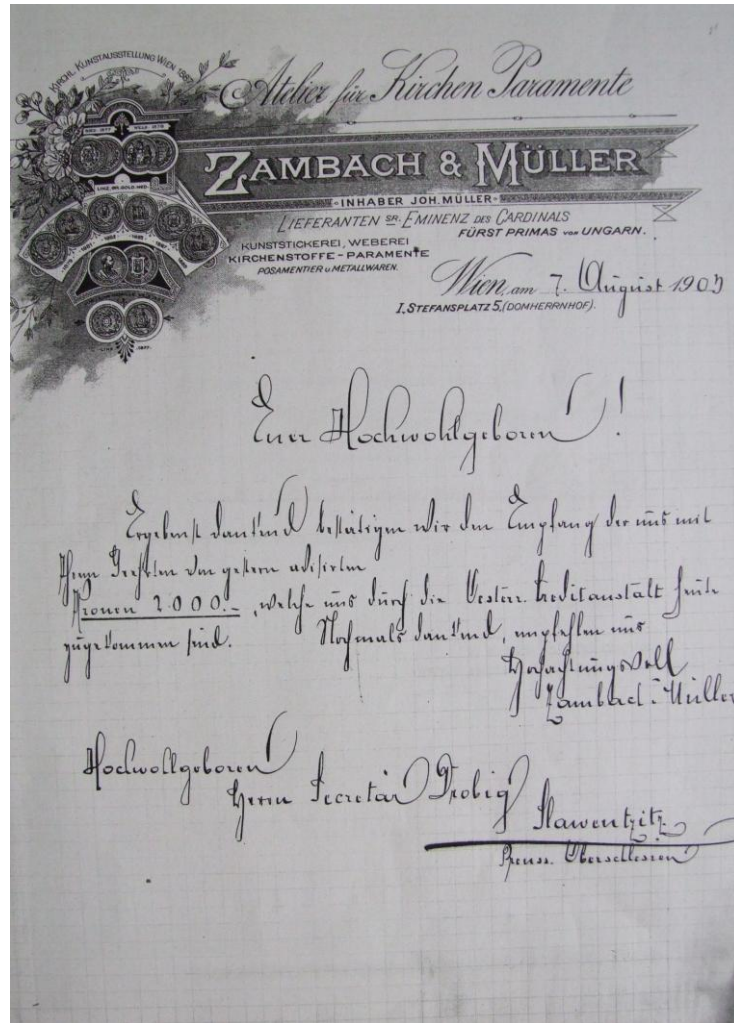 KIRCHL. KUNSTAUSSTELLUNG WIEN 1887
Atelier für Kirchen Paramente
ZAMBACH & MÜLLER
INHABER JOH. MÜLLER
LIEFERANTEN SR. EMINENZ DES CARDINALS
FÜRST PRIMAS VON UNGARN.
KUNSTSTICKEREI, WEBEREI
KIRCHENSTOFFE - PARAMENTE
POSAMENTIER U. METALLWAREN.
Wien, am 7. August 1903
I. STEFANSPLATZ 5, (DOMHERRNHOF).
Euer Hochwohlgeboren!
Ergebenst dankend bestätigen wir den Empfang der uns mit
Ihrem Geehrten von gestern avisirten
Kronen 2000.-, welche uns durch die Oesterr. Creditanstalt heute
zugekommen sind. Nochmals dankend, empfehlen uns
Hochachtungsvoll
Zambach & Müller
Hochwollgeboren
Herrn Secretär Drobig
Slawentzitz
Preuss. Oberschlesien